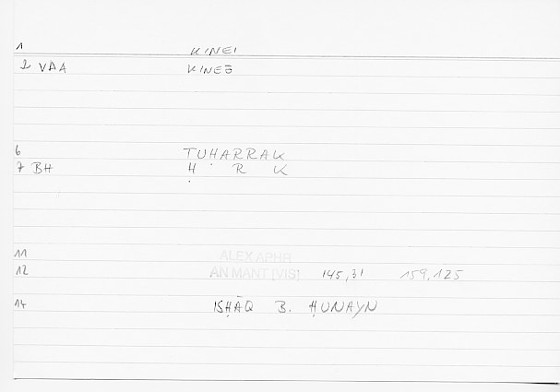 1 KINEI
2 VAA KINEŌ
6 TUHARRAK
7 BH Ḥ R K
11 ALEX APHR
12 AN MANT [VIS] 145,31 159,125
14 ISḤĀQ B. ḤUNAYN